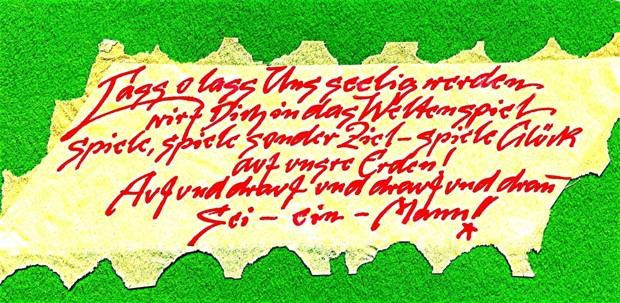 Lass o lass Uns seelig werden
wirf Dich in das Weltenspiel
spiele, spiele sonder Ziel – spiele Glück
auf unsre Erden!
Auf und drauf und drauf und dran
Sei – ein – Mann!